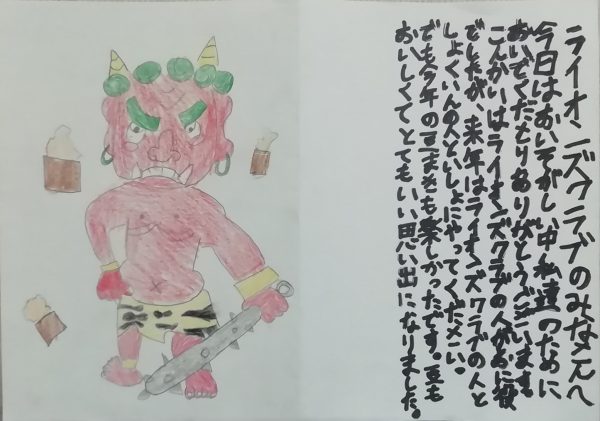 ライオンズクラブのみなさんへ
今日はおいそがしい中私達のために
おいでくださりありがとうございます。
こんかいはライオンズクラブの人がおに役
でしたが、来年はライオンズクラブの人と
しょくいんの人といっしょにやってください。
でも今年の豆まきも楽しかったです。豆も
おいしくてとてもいい思い出になりました。